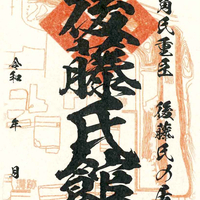 角氏重臣 後藤氏の居
後藤氏館
令和 年 月